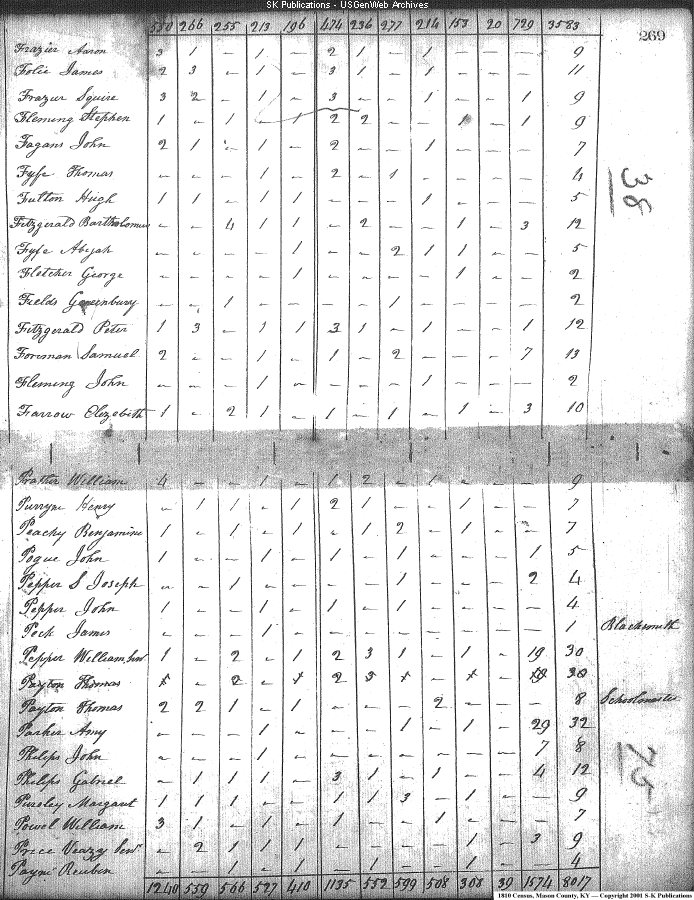 SK Publications - USGenWeb Archives
550 266 255 213 196 474 236 277 214 153 20 729 3583
269
Frazier Aaron 3 1 - 1 - 2 1 - 1 - - - 9
Folie James 2 3 - 1 - 3 1 - 1 - - - 11
Frazier Squire 3 2 - 1 - 3 - - 1 - - 1 9
Fleming Stephen 1 - 1 - 1 2 2 - - 1 - 1 9
Fagans John 2 1 - 1 - 2 - - 1 - - - 7
Fyfe Thomas - - - 1 - 2 - 1 - - - - 4
38
Fulton Hugh 1 1 - 1 1 - - - 1 - - - 5
Fitzgerald Bartholomew - - 4 1 1 - 2 - - 1 - 3 12
Fyfe Abijah - - - - 1 - - 2 1 1 - - 5
Fletcher George - - - - 1 - - - - 1 - - 2
Fields Greenbury - - 1 - - - - 1 - - - - 2
Fitzgerald Peter 1 3 - 1 1 3 1 - 1 - - 1 12
Foreman Samuel 2 - - 1 - 1 - 2 - - - 7 13
Fleming John - - - 1 - - - - 1 - - - 2
Farrow Elizebeth 1 - 2 1 - 1 - 1 - 1 - 3 10
Prather William 4 - - 1 - 1 2 - 1 - - - 9
Purryne Henry - 1 1 - 1 2 1 - - 1 - - 7
Peachy Benjamine 1 - 1 - 1 - 1 2 - 1 - - 7
Pogue John 1 - - 1 - 1 - 1 - - - 1 5
Pepper S Joseph - - 1 - - - - 1 - - - 2 4
Pepper John 1 - - 1 - 1 - 1 - - - - 4
Peck James - - - 1 - - - - - - - - 1 Blacksmith
Pepper William, Senr 1 - 2 - 1 2 3 1 - 1 - 19 30
Payton Thomas 1 - 2 - 1 2 3 1 - 1 - 19 30
Payton Thomas 2 2 1 - 1 - - - 2 - - - 8 Schoolmaster
Parker Amy - - - 1 - - - 1 - 1 - 29 32
Philips John - - - 1 - - - - - - - 7 8
75
Philips Gabriel - 1 1 1 - 3 1 - 1 - - 4 12
Pursley Margaret 1 1 1 - - 1 1 3 - 1 - - 9
Powel William 3 1 - 1 - 1 - - 1 - - - 7
Price Veazy Senr - 2 1 1 1 - - - - 1 - 3 9
Payne Reuben - - 1 - 1 - 1 - - 1 - - 4
1240 559 566 527 410 1135 552 599 508 308 39 1574 8017
1810 Census, Mason County, KY — Copyright 2001 S-K Publications